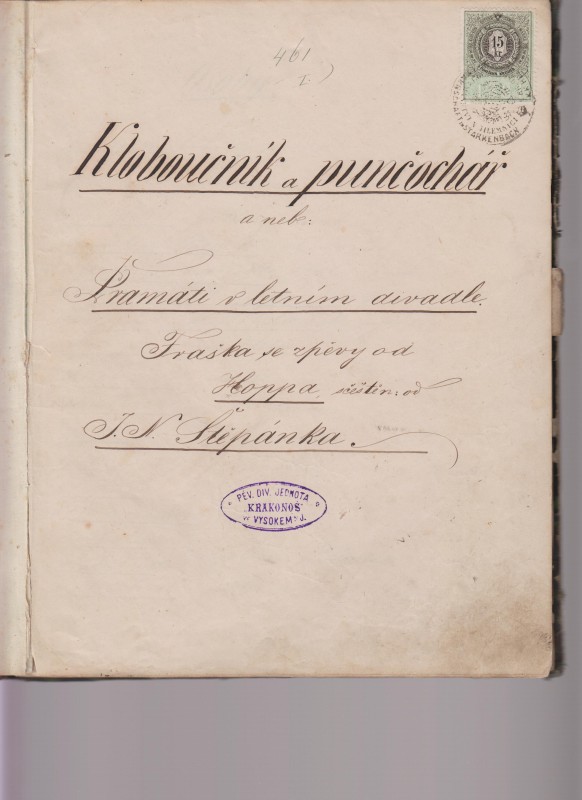 461
15
kr
STARKENBACH
Kloboučník a punčochář
a neb:
Pramáti v letním divadle.
Fraška se zpěvy od
Hoppa, sčeštěn: od
J. N. Štěpánka.
PĚV. DIV. JEDNOTA
"KRAKONOŠ"
VE VYSOKÉM n J.